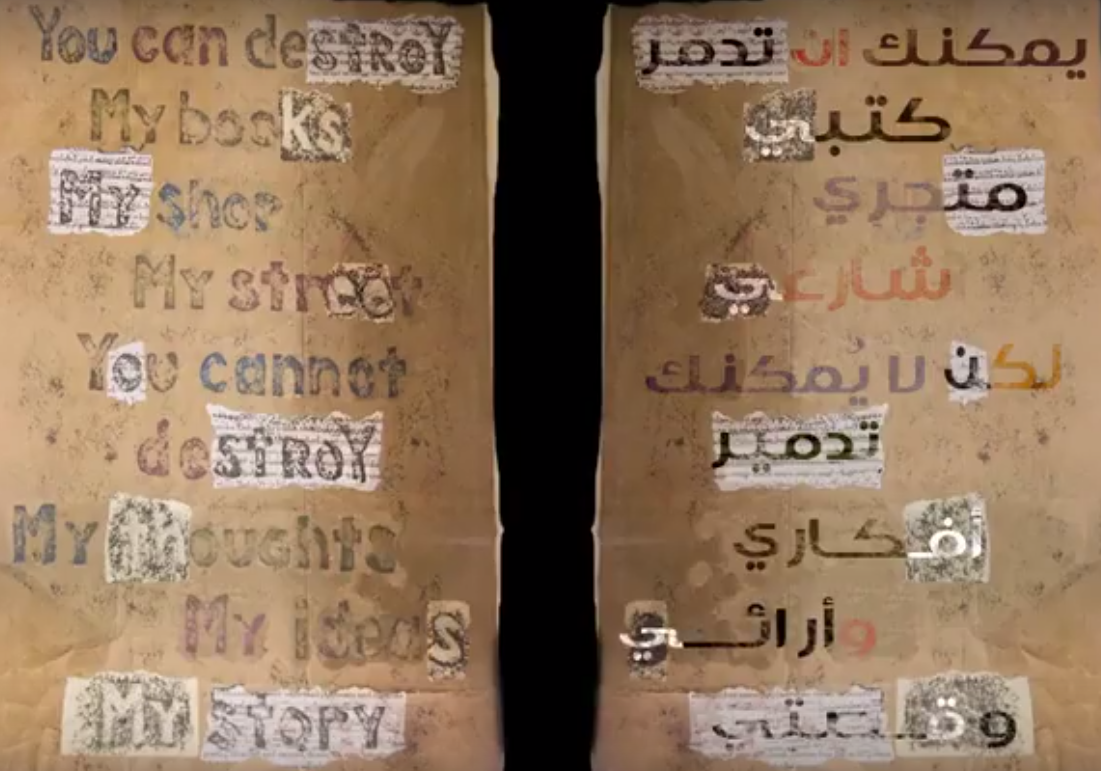 You can destroy
My books
My shop
My street
You cannot
destroy
My thoughts
My ideas
My story
يمكنك ان تدمر
كتبي
متجري
شارعي
لكن لا يُمكنك
تدمير
أفكاري
وأرائي
وقصتي